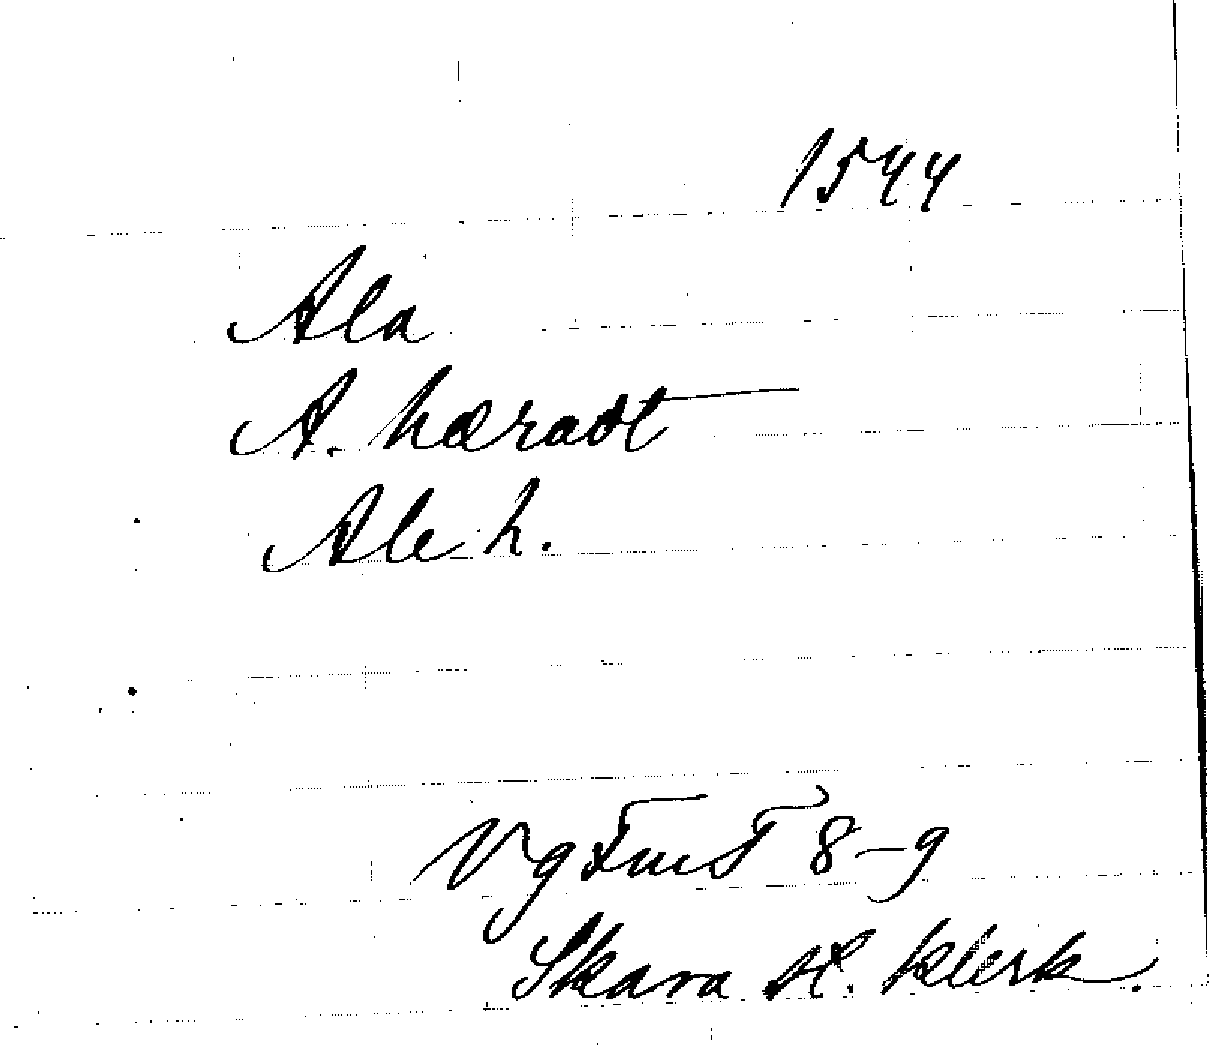 1544
Ala
A. hæradt
Ale h.
VgFmT 8-9
Skara st. klerk.